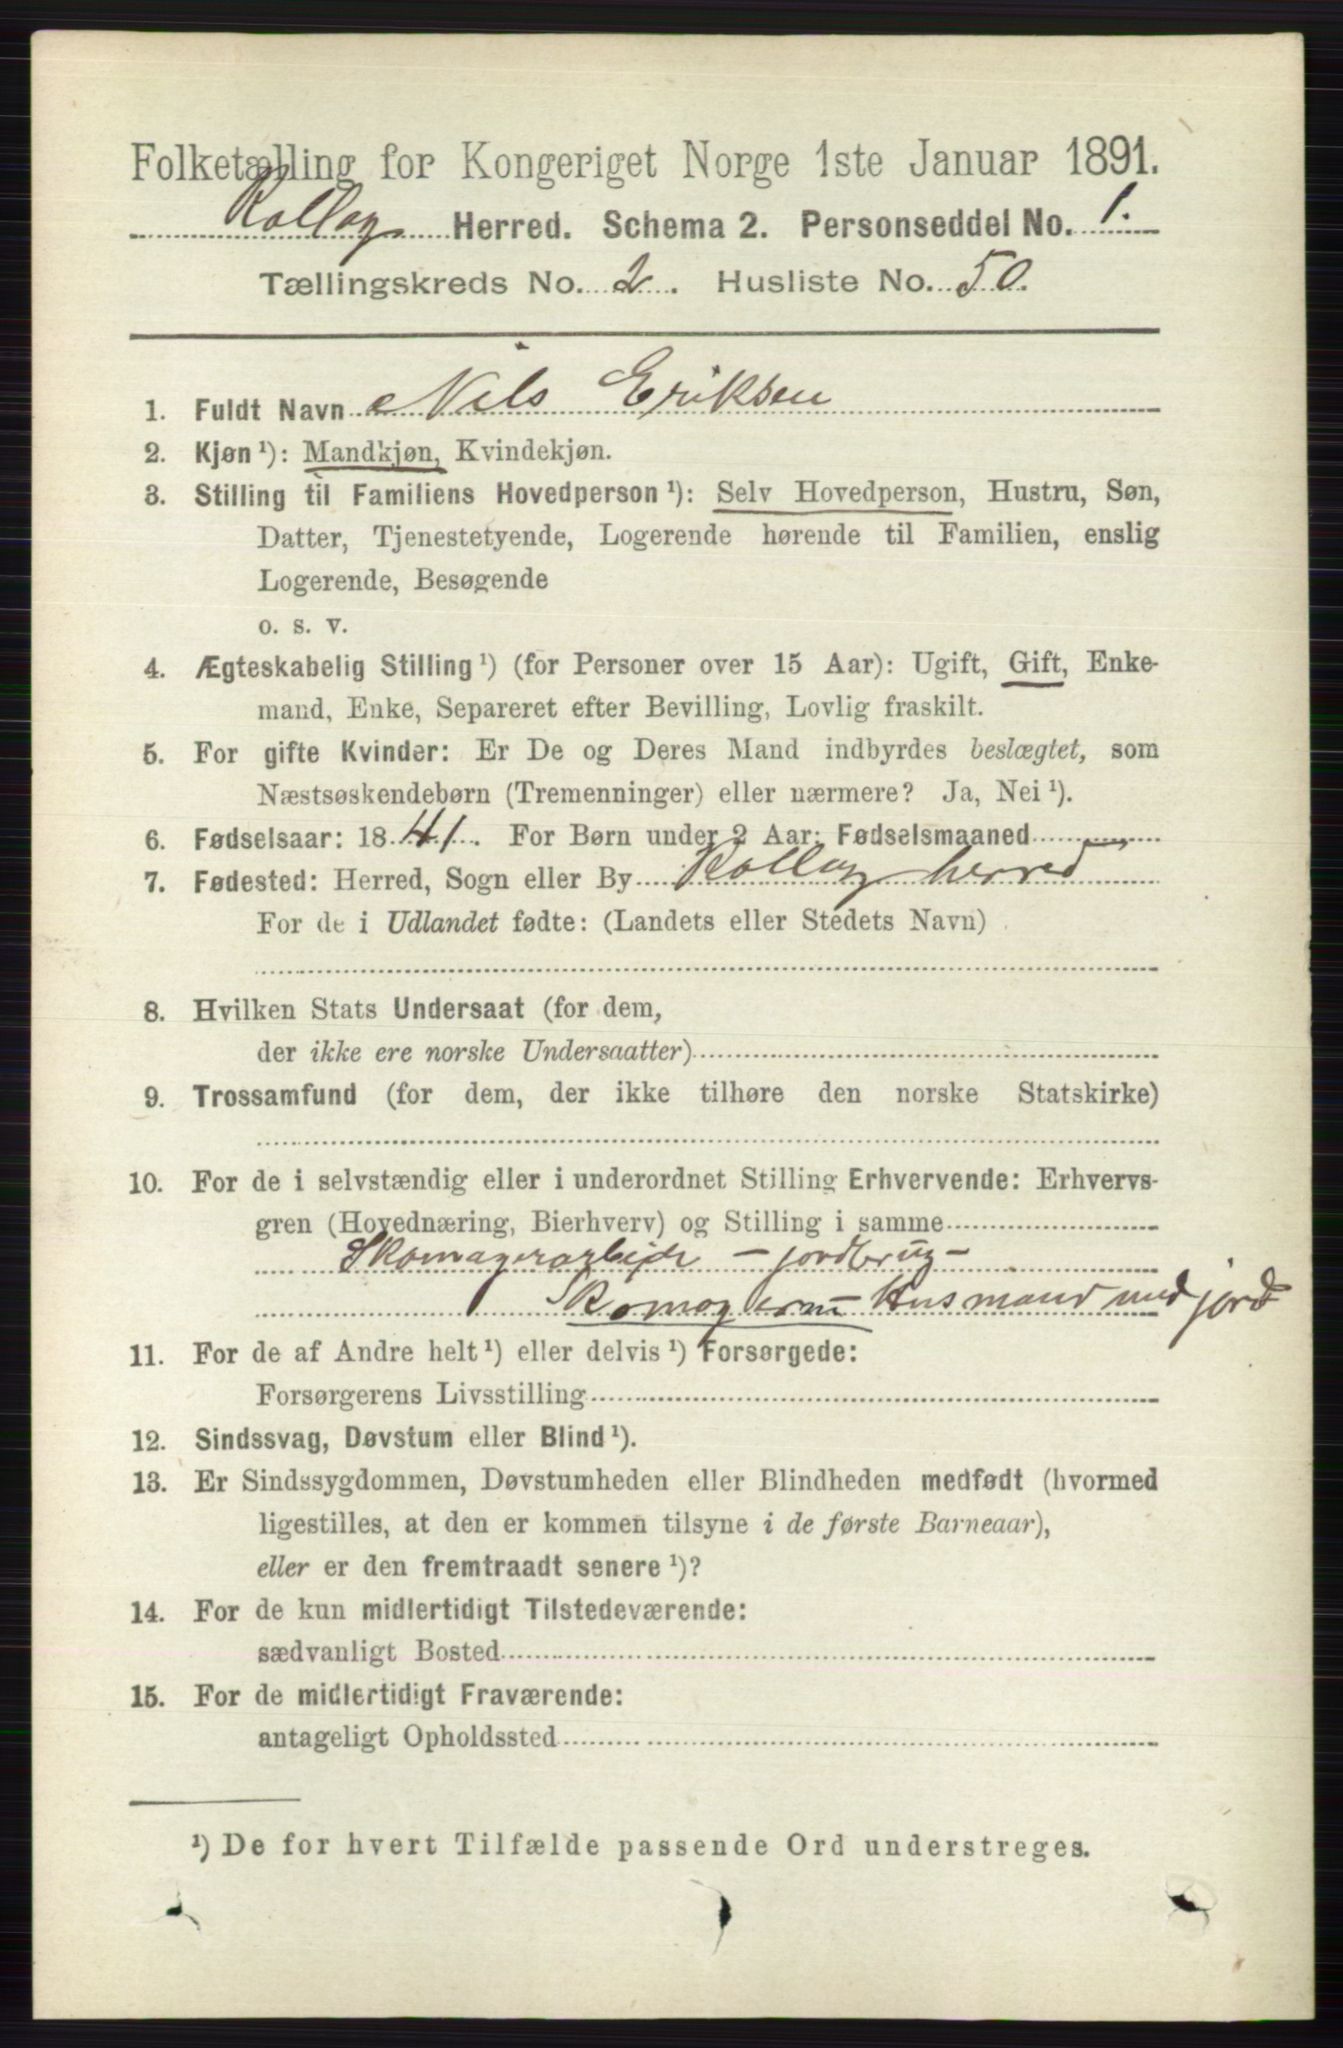 Folketælling for Kongeriget Norge 1ste Januar 1891.
Rollag Herred. Schema 2. Personseddel No. 1.
Tællingskreds No. 2. Husliste No. 50.
1. Fuldt Navn Nils Eriksen
2. Kjøn ¹): Mandkjøn, Kvindekjøn.
3. Stilling til Familiens Hovedperson ¹): Selv Hovedperson, Hustru, Søn,
Datter, Tjenestetyende, Logerende hørende til Familien, enslig
Logerende, Besøgende
o. s. v.
4. Ægteskabelig Stilling ¹) (for Personer over 15 Aar): Ugift, Gift, Enke-
mand, Enke, Separeret efter Bevilling, Lovlig fraskilt.
5. For gifte Kvinder: Er De og Deres Mand indbyrdes beslægtet, som
Næstsøskendebørn (Tremenninger) eller nærmere? Ja, Nei ¹).
6. Fødselsaar: 1841. For Børn under 2 Aar: Fødselsmaaned
7. Fødested: Herred, Sogn eller By Rollag herred
For de i Udlandet fødte: (Landets eller Stedets Navn)
8. Hvilken Stats Undersaat (for dem,
der ikke ere norske Undersaatter)
9. Trossamfund (for dem, der ikke tilhøre den norske Statskirke)
10. For de i selvstændig eller i underordnet Stilling Erhvervende: Erhvervs-
gren (Hovednæring, Bierhverv) og Stilling i samme
Skomagerarbeide - jordbrug -
Husmand med jord
11. For de af Andre helt ¹) eller delvis ¹) Forsørgede:
Forsørgerens Livsstilling
12. Sindssvag, Døvstum eller Blind ¹).
13. Er Sindssygdommen, Døvstumheden eller Blindheden medfødt (hvormed
ligestilles, at den er kommen tilsyne i de første Barneaar),
eller er den fremtraadt senere ¹)?
14. For de kun midlertidigt Tilstedeværende:
sædvanligt Bosted
15. For de midlertidigt Fraværende:
antageligt Opholdssted
¹) De for hvert Tilfælde passende Ord understreges.